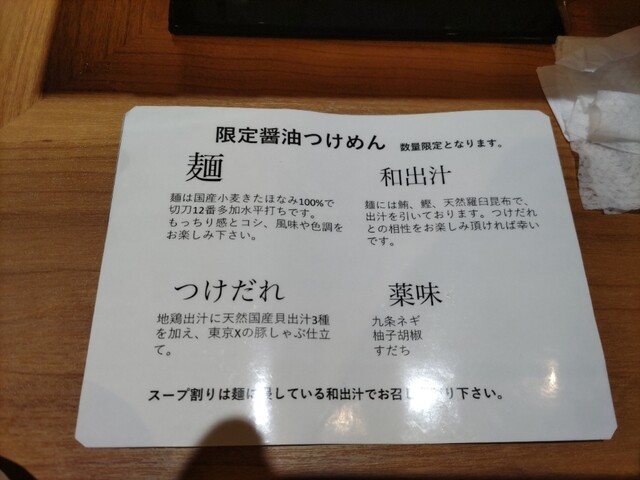 限定醤油つけめん 数量限定となります。
麺
麺は国産小麦きたほなみ100%で
切刃12番多加水平打ちです。
もっちり感とコシ、風味や色調を
お楽しみ下さい。
和出汁
麺には鮪、鰹、天然羅臼昆布で、
出汁を引いております。つけだれ
との相性をお楽しみ頂ければ幸い
です。
つけだれ
地鶏出汁に天然国産貝出汁3種
を加え、東京Xの豚しゃぶ仕立
て。
薬味
九条ネギ
柚子胡椒
すだち
スープ割りは麺に している和出汁でお召し り下さい。